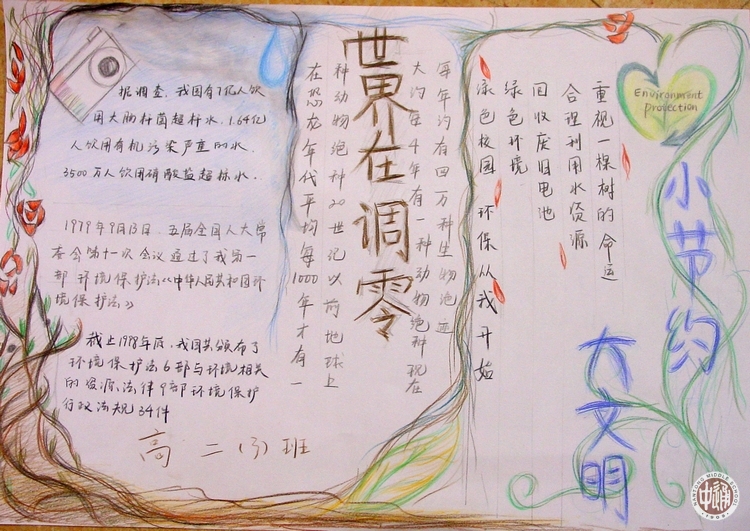 据调查,我国有7亿人饮
用大肠杆菌超杆水,1.64亿
人饮用有机污染严重的水,
3500万人饮用硝酸盐超标水.
1979年9月13日,五届全国人大常
委会第十一次会议通过了我第一
部环境保护法《中华人民共和国环
境保护法》
截止1998年后,我国共颁布了
环境保护法6部与环境相关
的资源法律9部环境保护
行政法规34件
高二(3)班
世界在调零
每年约有四万种生物绝迹
大约每4年有一种动物绝种现在
种动物绝种20世纪以前地球上
在恐龙年代平均每1000年才有一
Environment
protection
小节约
大文明
重视一棵树的命运
合理利用水资源
回收废旧电池
绿色环境
绿色校园 环保从我开始